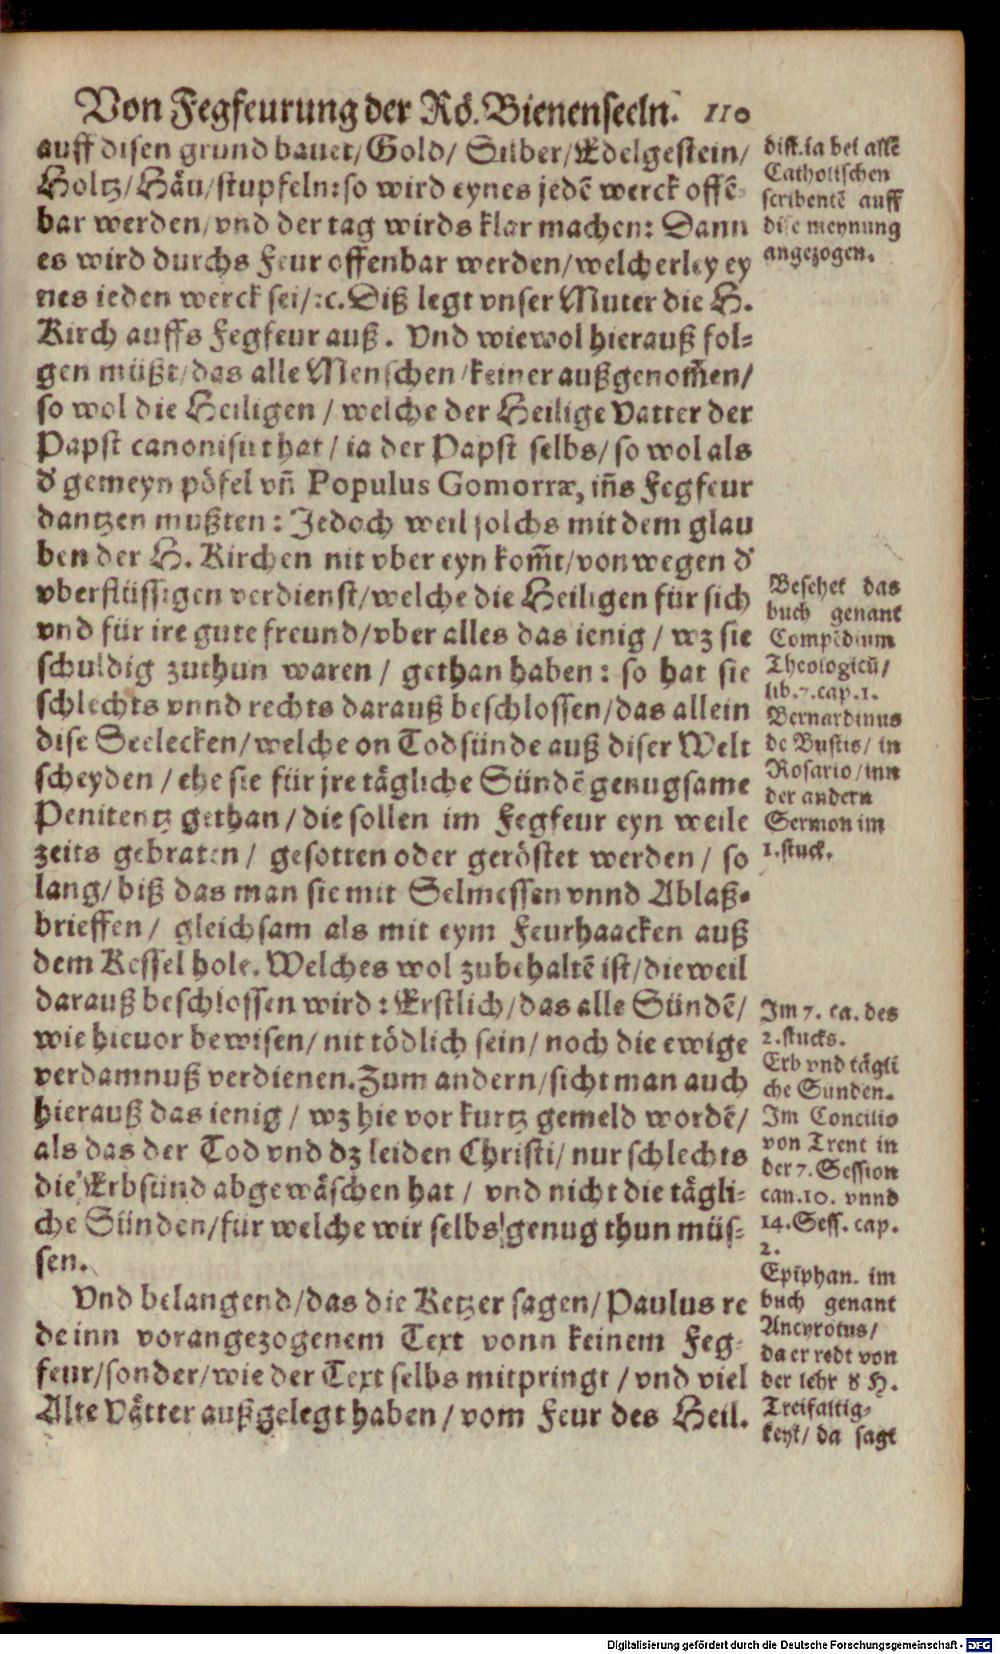 Von Fegfeurung der Rö. Bienenseeln. 110
auff disen grund bauet/ Gold/ Silber/ Edelgestein/
Holtz/ Häu/ stupfeln: so wird eynes jedē werck offē-
bar werden/ vnd der tag wirds klar machen: Dann
es wird durchs Feur offenbar werden/ welcherley ey
nes ieden werck sei/ ꝛc. Diß legt vnser Muter die H.
Kirch auffs Fegfeur auß. Vnd wiewol hierauß fol-
gen müßt/ das alle Menschen/ keiner außgenom̄en/
so wol die Heiligen/ welche der Heilige Vatter der
Papst canonisiit hat/ ia der Papst selbs/ so wol als
d' gemeyn pöfel vn̄ Populus Gomorræ, in̄s Fegfeur
dantzen mußten: Jedoch weil solchs mit dem glau
ben der H. Kirchen nit vber eyn kom̄t/ von wegen d'
vberflüssigen verdienst/ welche die Heiligen für sich
vnd für ire gute freund/ vber alles das ienig/ wz sie
schuldig zuthun waren/ gethan haben: so hat sie
schlechts vnnd rechts darauß beschlossen/ das allein
dise Seelecken/ welche on Todsünde auß diser Welt
scheyden/ ehe sie für jre tägliche Sündē genugsame
Penitentz gethan/ die sollen im Fegfeur eyn weile
zeits gebraten/ gesotten oder geröstet werden/ so
lang/ biß das man sie mit Selmessen vnnd Ablaß-
brieffen/ gleichsam als mit eym Feurhaacken auß
dem Kessel hole. Welches wol zubehaltē ist/ dieweil
darauß beschlossen wird: Erstlich/ das alle Sündē/
wie hieuor bewisen/ nit tödlich sein/ noch die ewige
verdamnuß verdienen. Zum andern/ sicht man auch
hierauß das ienig/ wz hie vor kurtz gemeld wordē/
als das der Tod vnd dz leiden Christi/ nur schlechts
die Erbsünd abgewäschen hat/ vnd nicht die tägli-
che Sünden/ für welche wir selbs genug thun müs-
sen.
Vnd belangend/ das die Ketzer sagen/ Paulus re
de inn vorangezogenem Text vonn keinem Feg-
feur/ sonder/ wie der Text selbs mitpringt/ vnd viel
Alte Vätter außgelegt haben/ vom Feur des Heil.
diff. ia bei allē
Catholischen
scribentē auff
dise meynung
angezogen.
Besehet das
buch genant
Compēdium
Theologicū/
lib. 7. cap. 1.
Bernardinus
de Bustis/ in
Rosario/ inn
der andern
Sermon im
1. stuck.
Im 7. ca. des
2. stucks.
Erb vnd tägli
che Sunden.
Im Concilio
von Trent in
der 7. Session
can. 10. vnnd
14. Sess. cap.
2.
Epiphan. im
buch genant
Ancyrotus/
da er redt von
der lehr d' H.
Treifaltig-
keyt/ da sagt
Digitalisierung gefördert durch die Deutsche Forschungsgemeinschaft - DFG